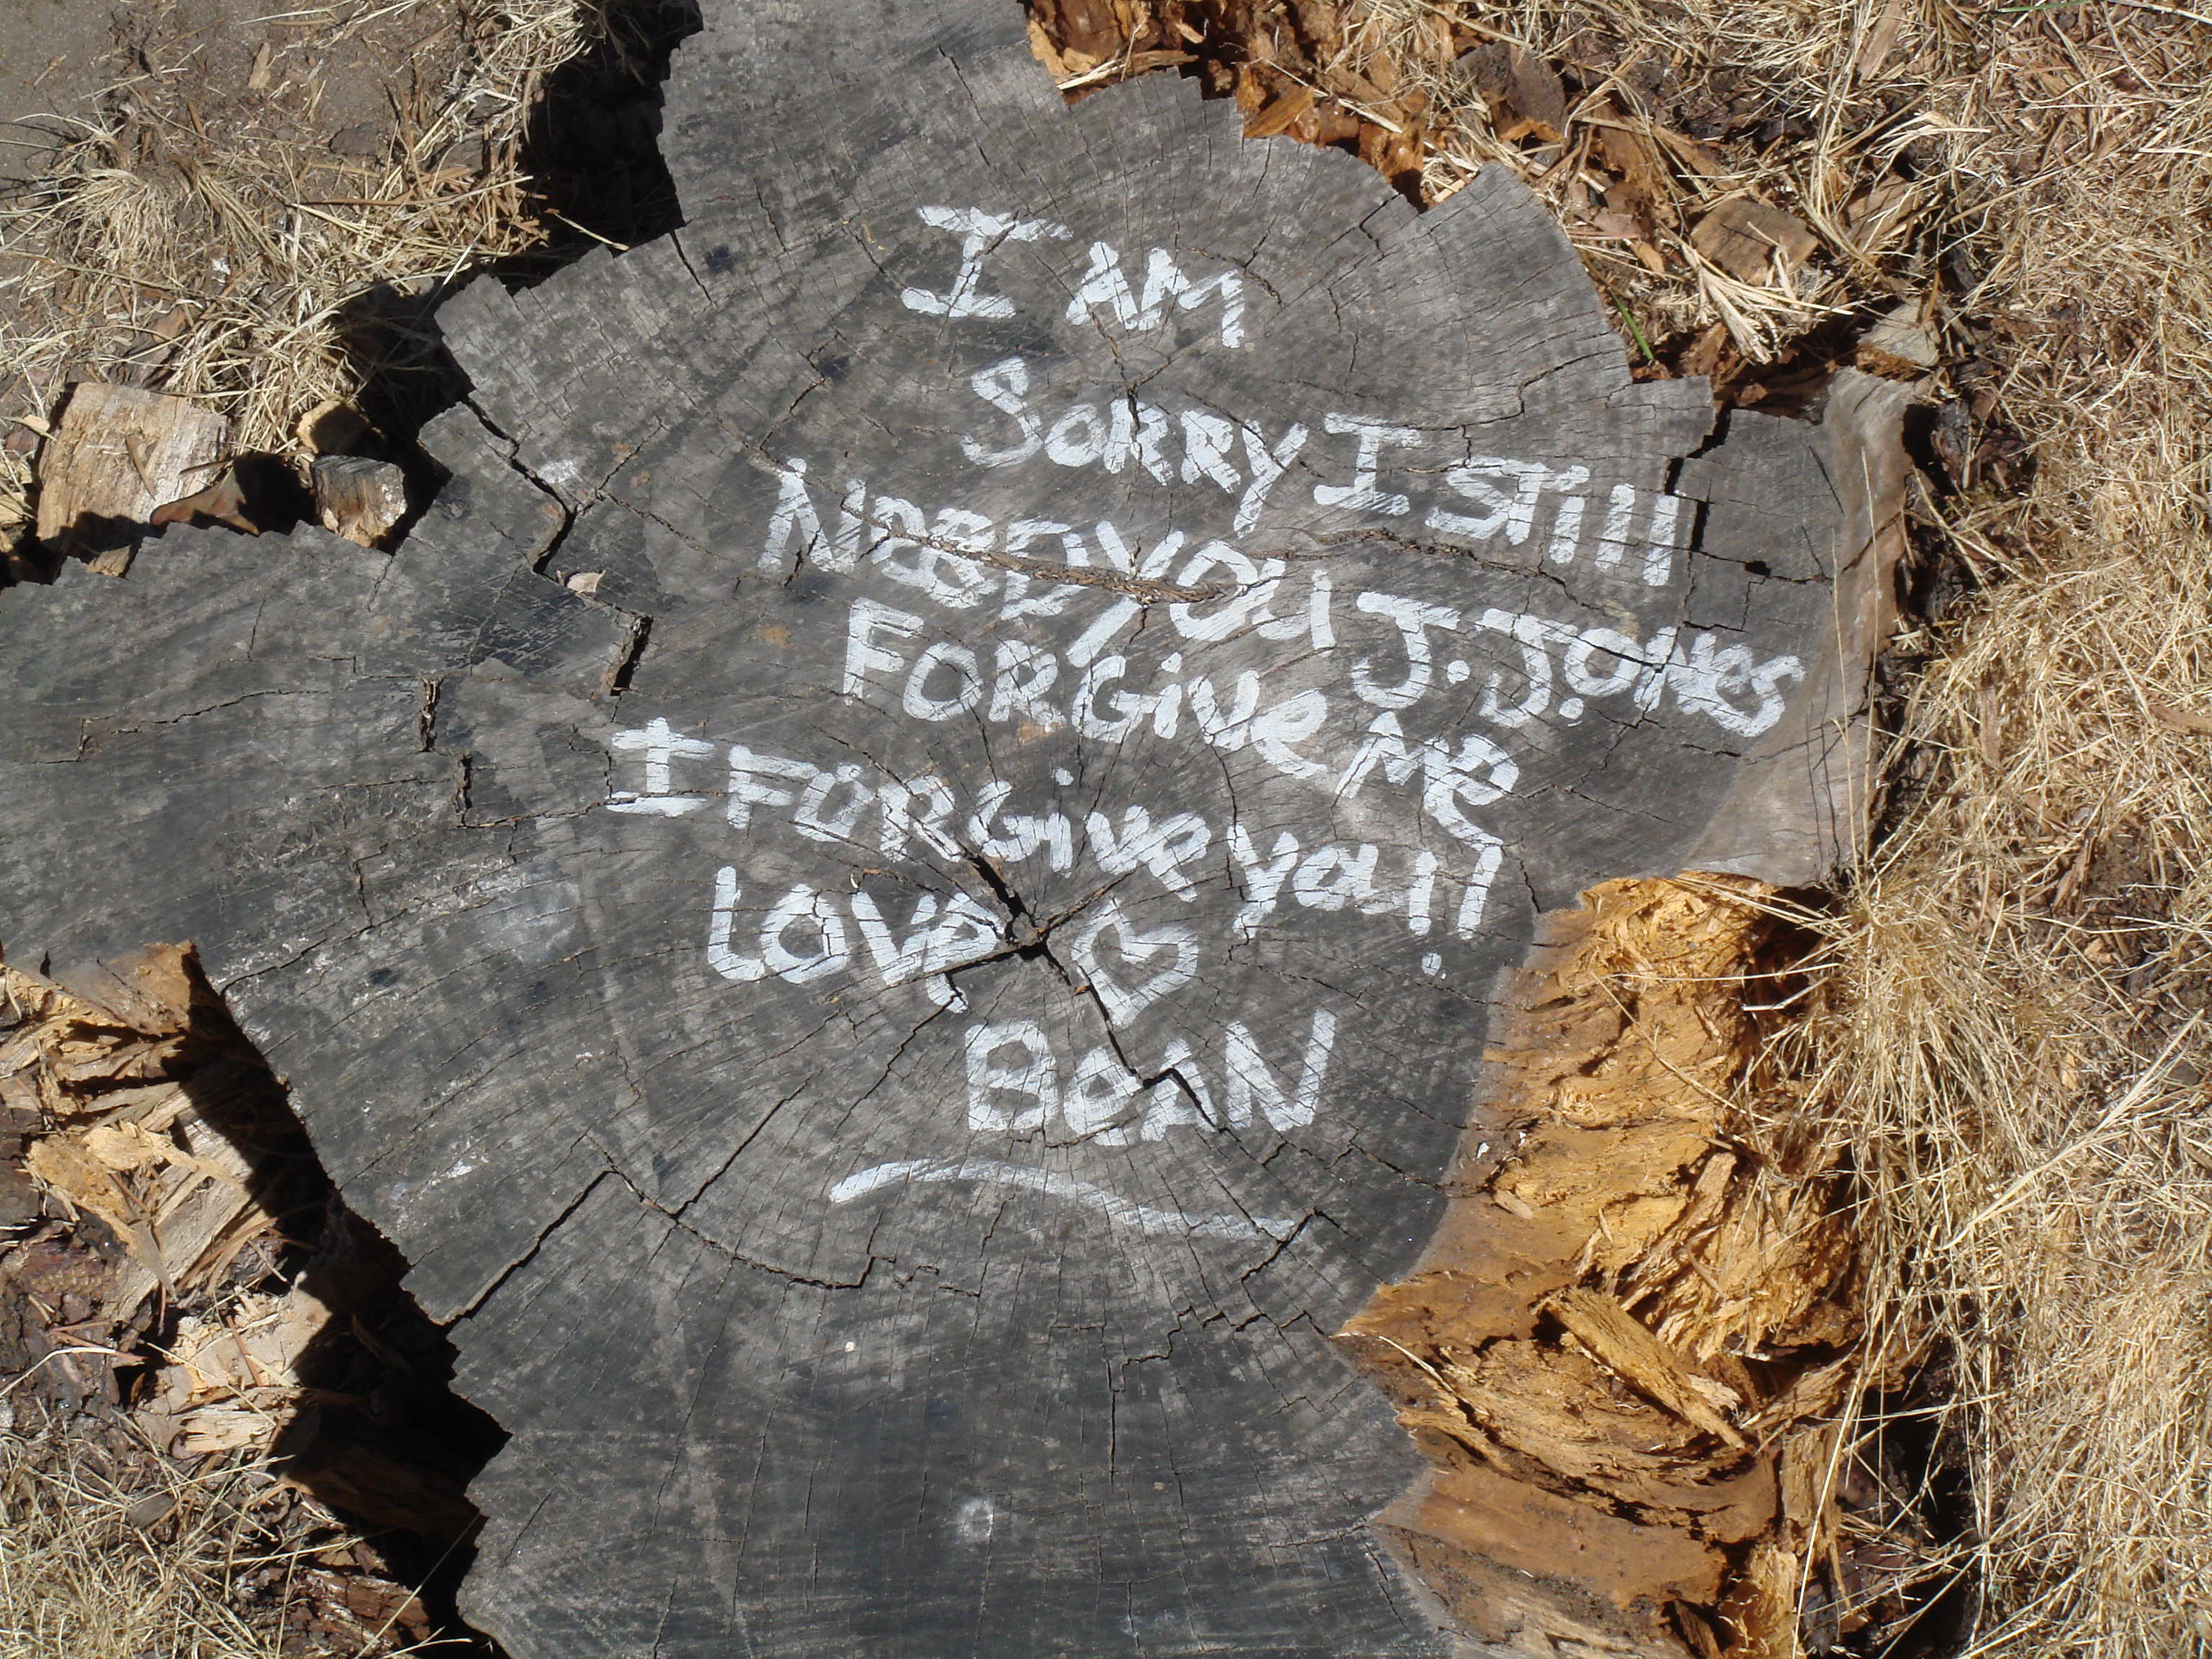 I AM
SORRY I STill
NEED YOU J.J.JONES
FORGiVe Me
I FORGive you!!
LOVe
BeAN